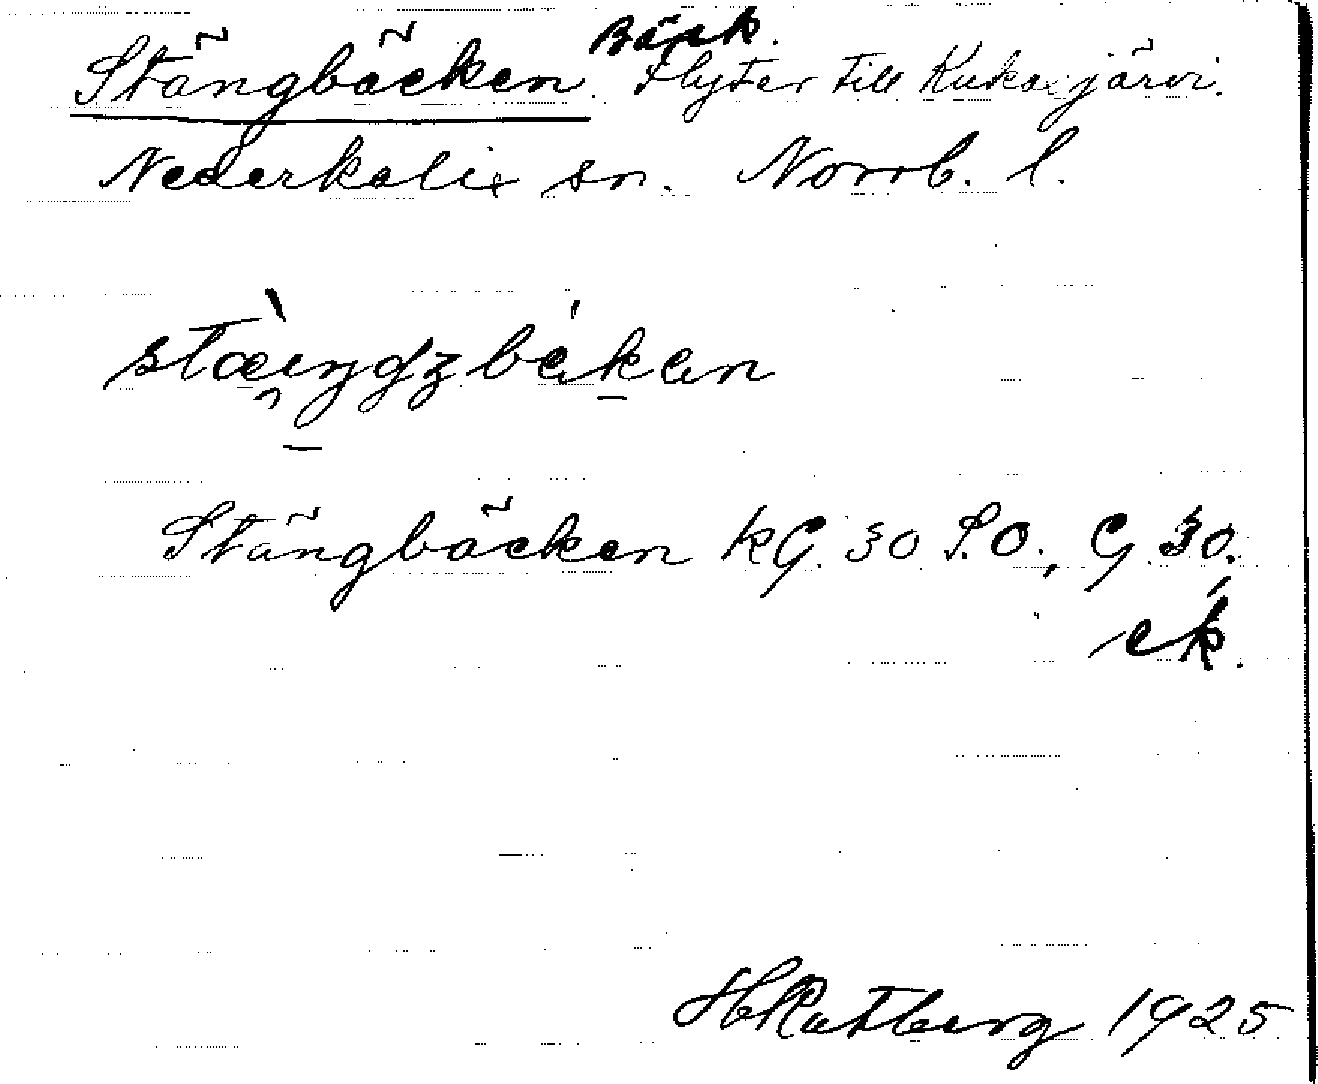 Stängbäcken. Bäck. Flyter till Kukasjärvi.
Nederkalix sn. Norrb. l.
Stängbäcken kG. 30 S.O., G 30.
ek.
H Rutberg 1925